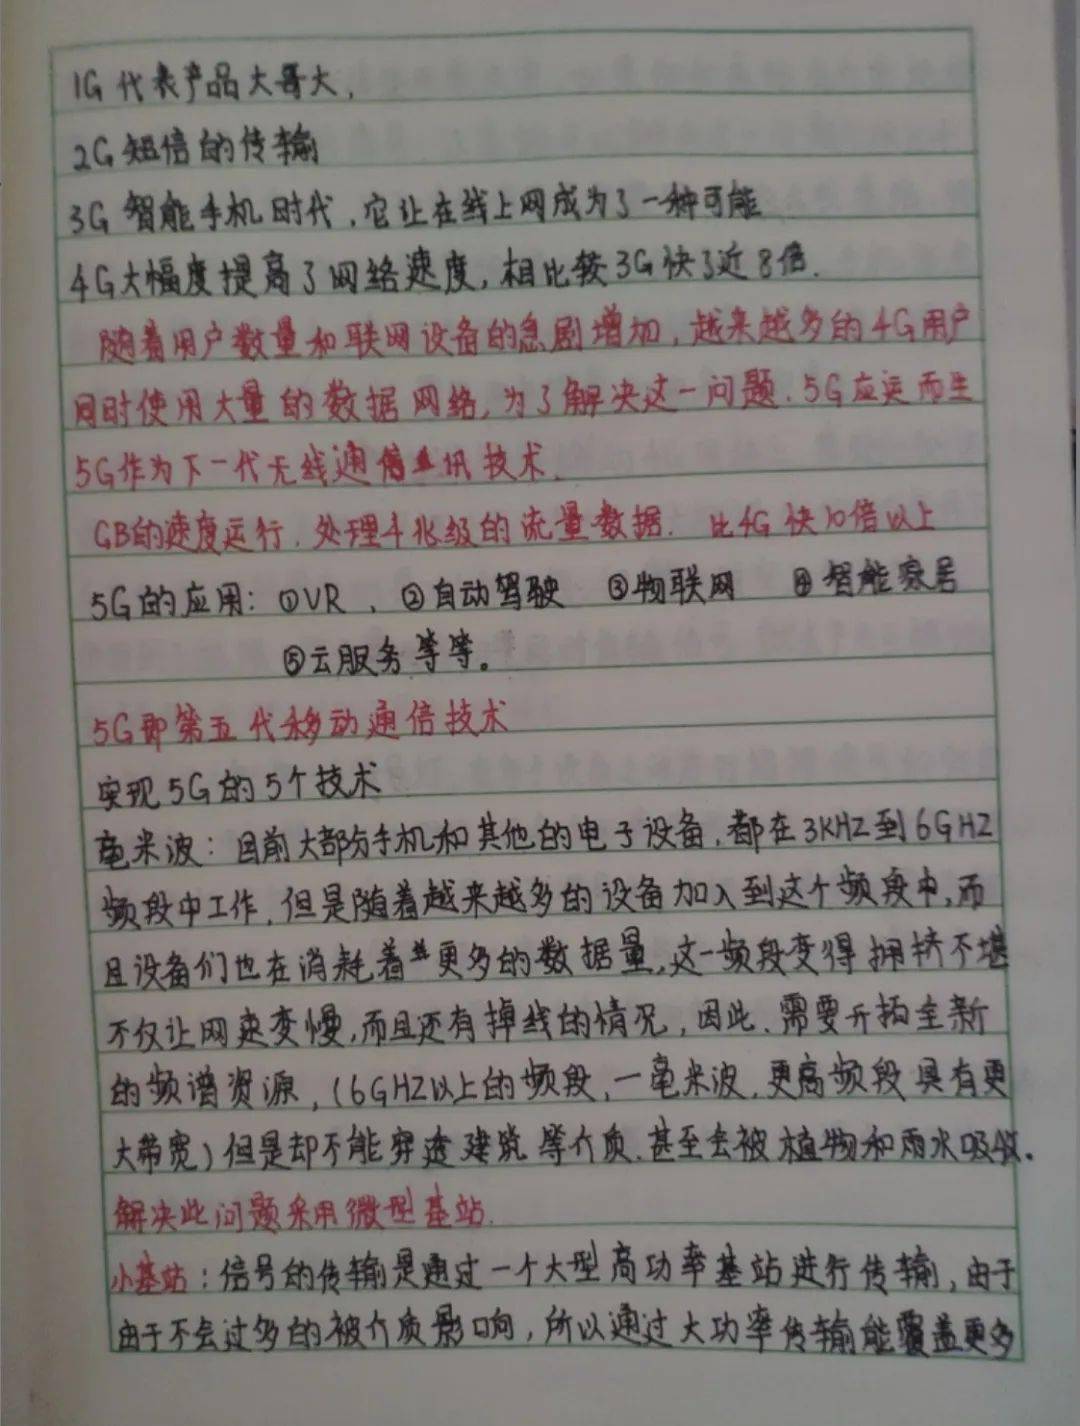 1G 代表产品大哥大,
2G 短信的传输
3G 智能手机时代,它让在线上网成为了一种可能
4G大幅度提高了网络速度,相比较3G快了近8倍.
随着用户数量和联网设备的急剧增加,越来越多的4G用户
同时使用大量的数据网络,为了解决这一问题.5G应运而生
5G作为下一代无线通信讯技术.
GB的速度运行.处理千兆级的流量数据. 比4G快10倍以上
5G的应用: ①VR 、②自动驾驶 ③物联网 ④智能家居
⑤云服务等等。
5G即第五代移动通信技术
实现5G的5个技术
毫米波:目前大部分手机和其他的电子设备,都在3KHZ到6GHZ
频段中工作,但是随着越来越多的设备加入到这个频段中,而
且设备们也在消耗着更多的数据量,这一频段变得拥挤不堪
不仅让网速变慢,而且还有掉线的情况,因此.需要开拓全新
的频谱资源,(6GHZ以上的频段,一毫米波.更高频段具有更
大带宽)但是却不能穿透建筑等介质.甚至会被植物和雨水吸收.
解决此问题采用微型基站.
小基站:信号的传输是通过一个大型高功率基站进行传输,由于
由于不会过多的被介质影响,所以通过大功率传输能覆盖更多